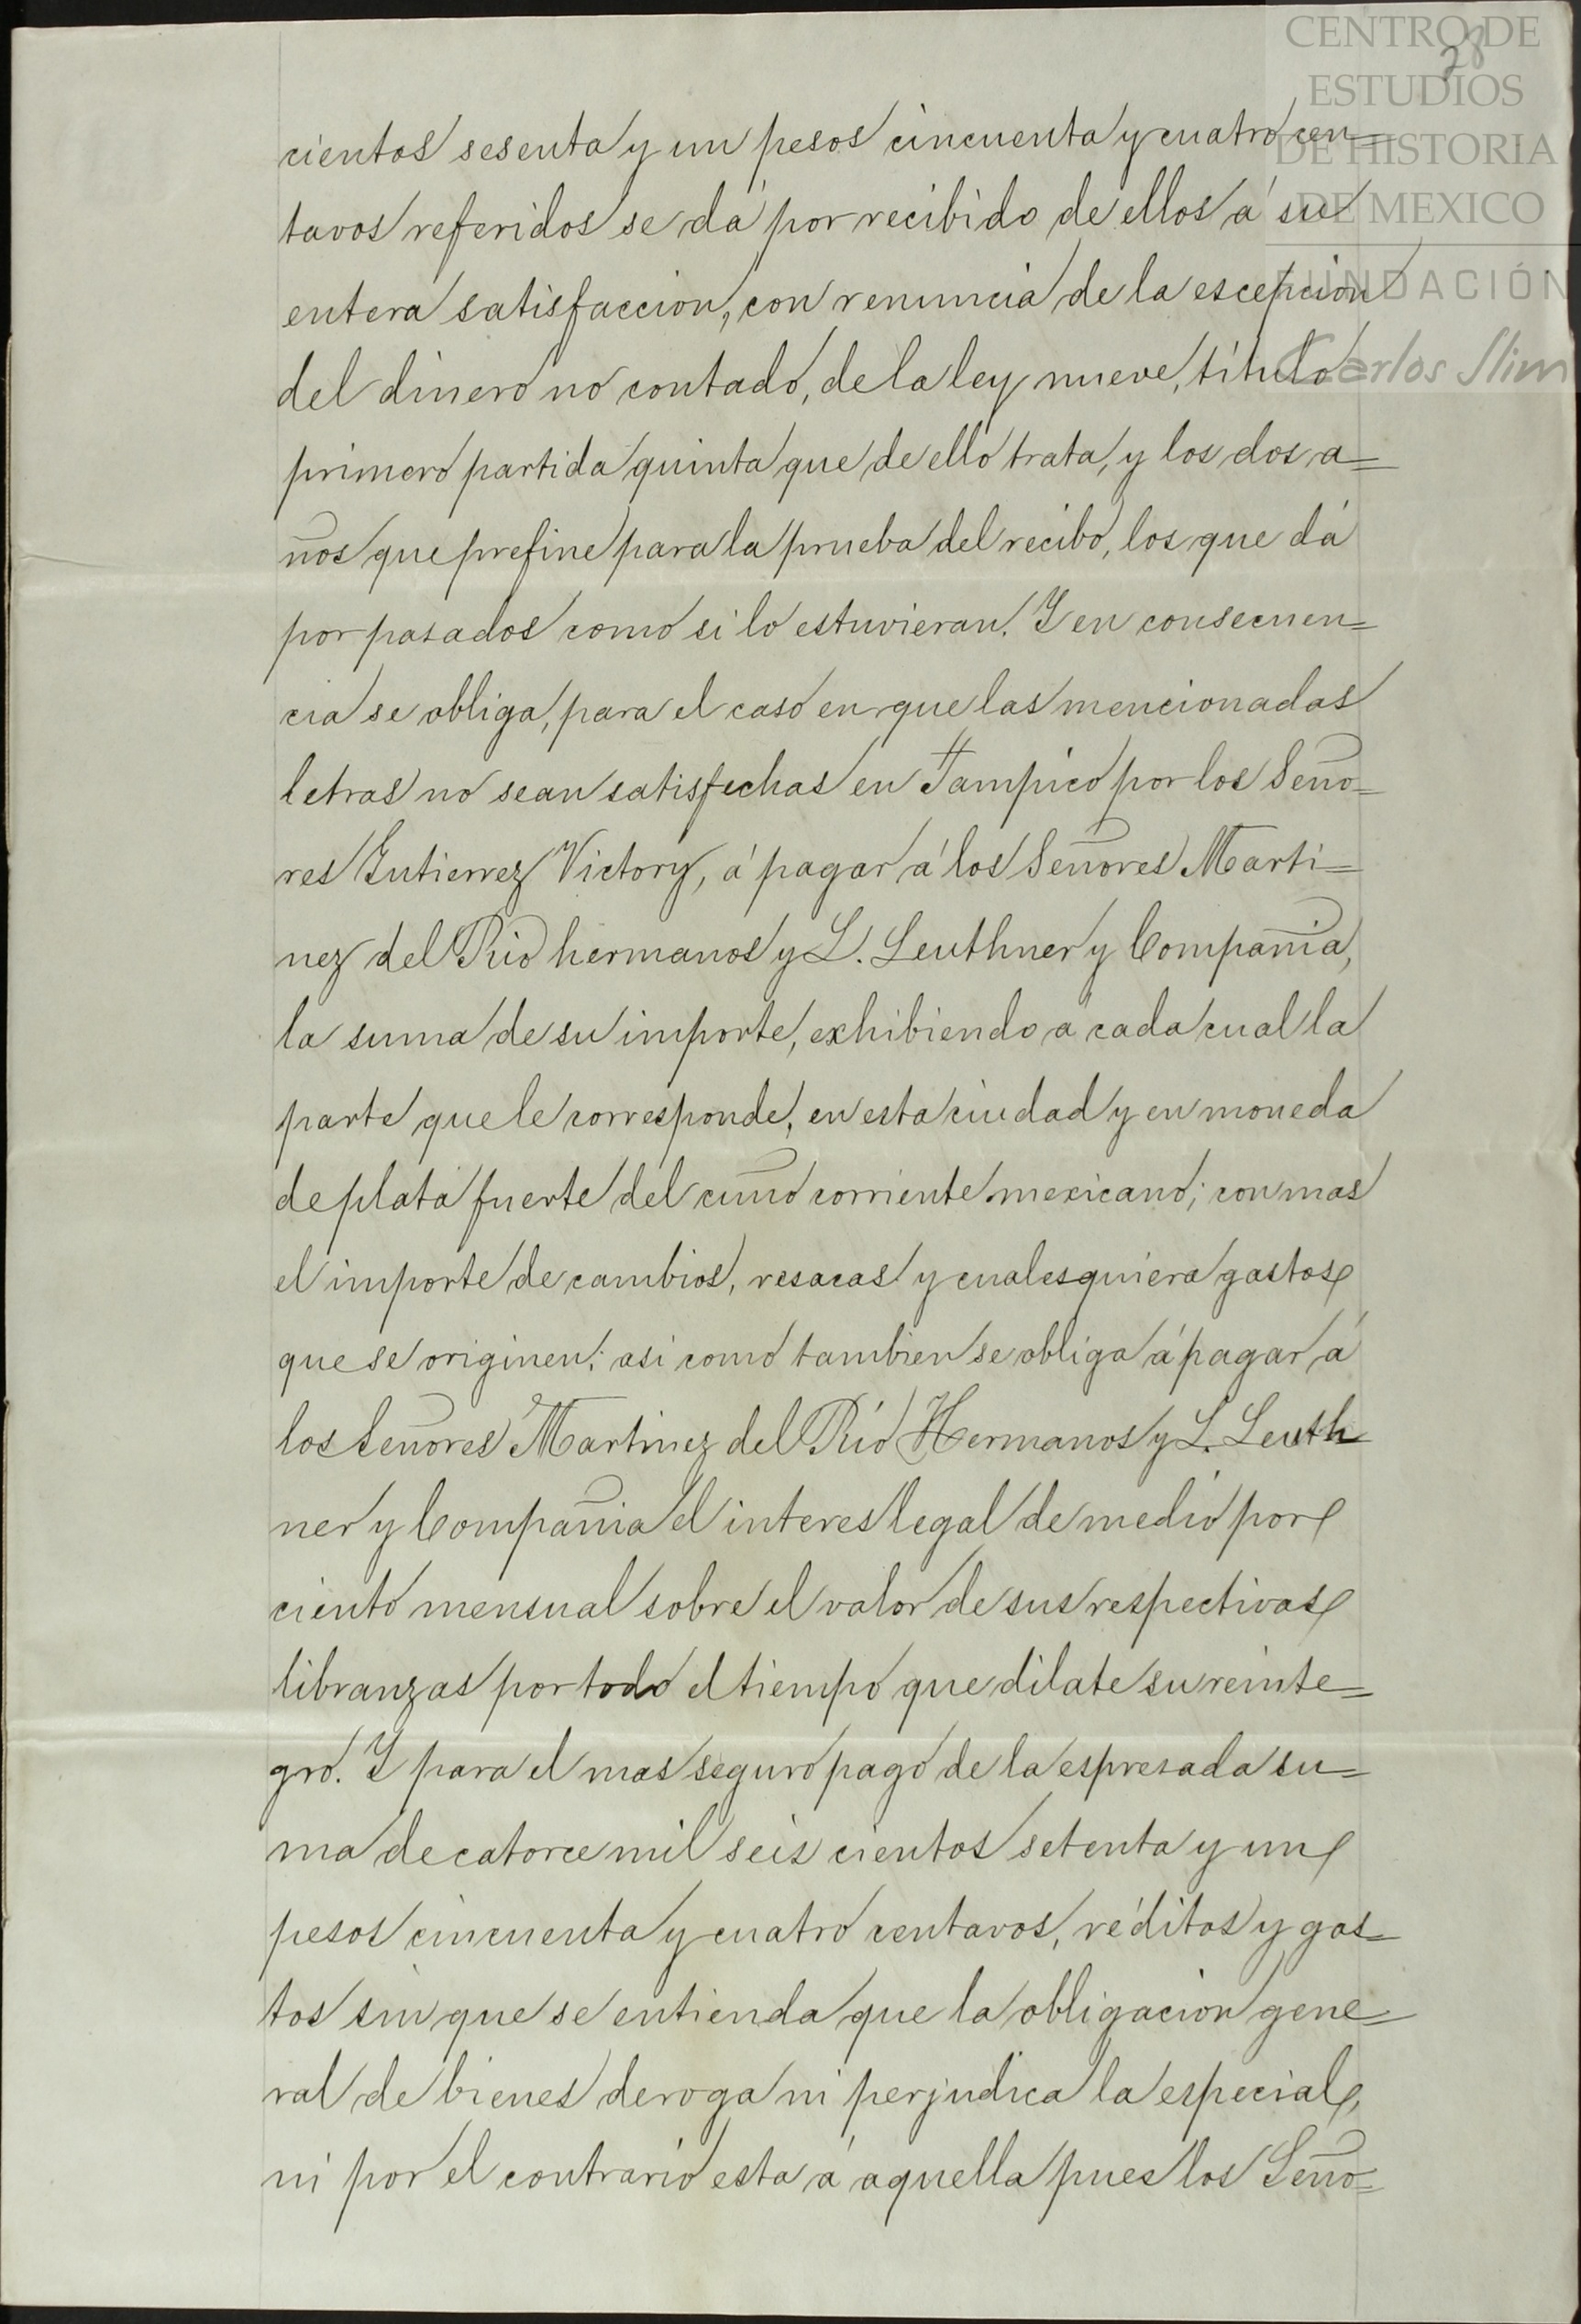 CENTRO DE
ESTUDIOS
DE HISTORIA
DE MEXICO
FUNDACIÓN
Carlos Slim
28
cientos sesenta y un pesos cincuenta y cuatro cen=
tavos referidos se dá por recibido de ellos á su
entera satisfaccion, con renuncia de la escepcion
del dinero no contado, de la ley nueve, título
primero partida quinta que de ello trata, y los dos a=
ños que prefine para la prueba del recibo, los que dá
por pasados como si lo estuvieran. Y en consecuen=
cia se obliga, para el caso en que las mencionadas
letras no sean satisfechas en Tampico por los Seño=
res Gutierrez Victory, á pagar á los Señores Marti=
nez del Rio hermanos y L. Leuthner y Compañia,
la suma de su importe, exhibiendo a cada cual la
parte que le corresponde, en esta ciudad y en moneda
de plata fuerte del cuño corriente mexicano; con mas
el importe de cambios, resacas y cualesquiera gastos
que se originen; asi como tambien se obliga á pagar á
los Señores Martinez del Rio Hermanos y L. Leuth
ner y Compañia el interes legal de medio por
ciento mensual sobre el valor de sus respectivas
libranzas por todo el tiempo que dilate su reinte=
gro. Y para el mas seguro pago de la espresada su=
ma de catorce mil seis cientos setenta y un
pesos cincuenta y cuatro centavos, réditos y gas=
tos sin que se entienda que la obligacion gene=
ral de bienes deroga ni perjudica la especial,
ni por el contrario esta á aquella pues los Seño=